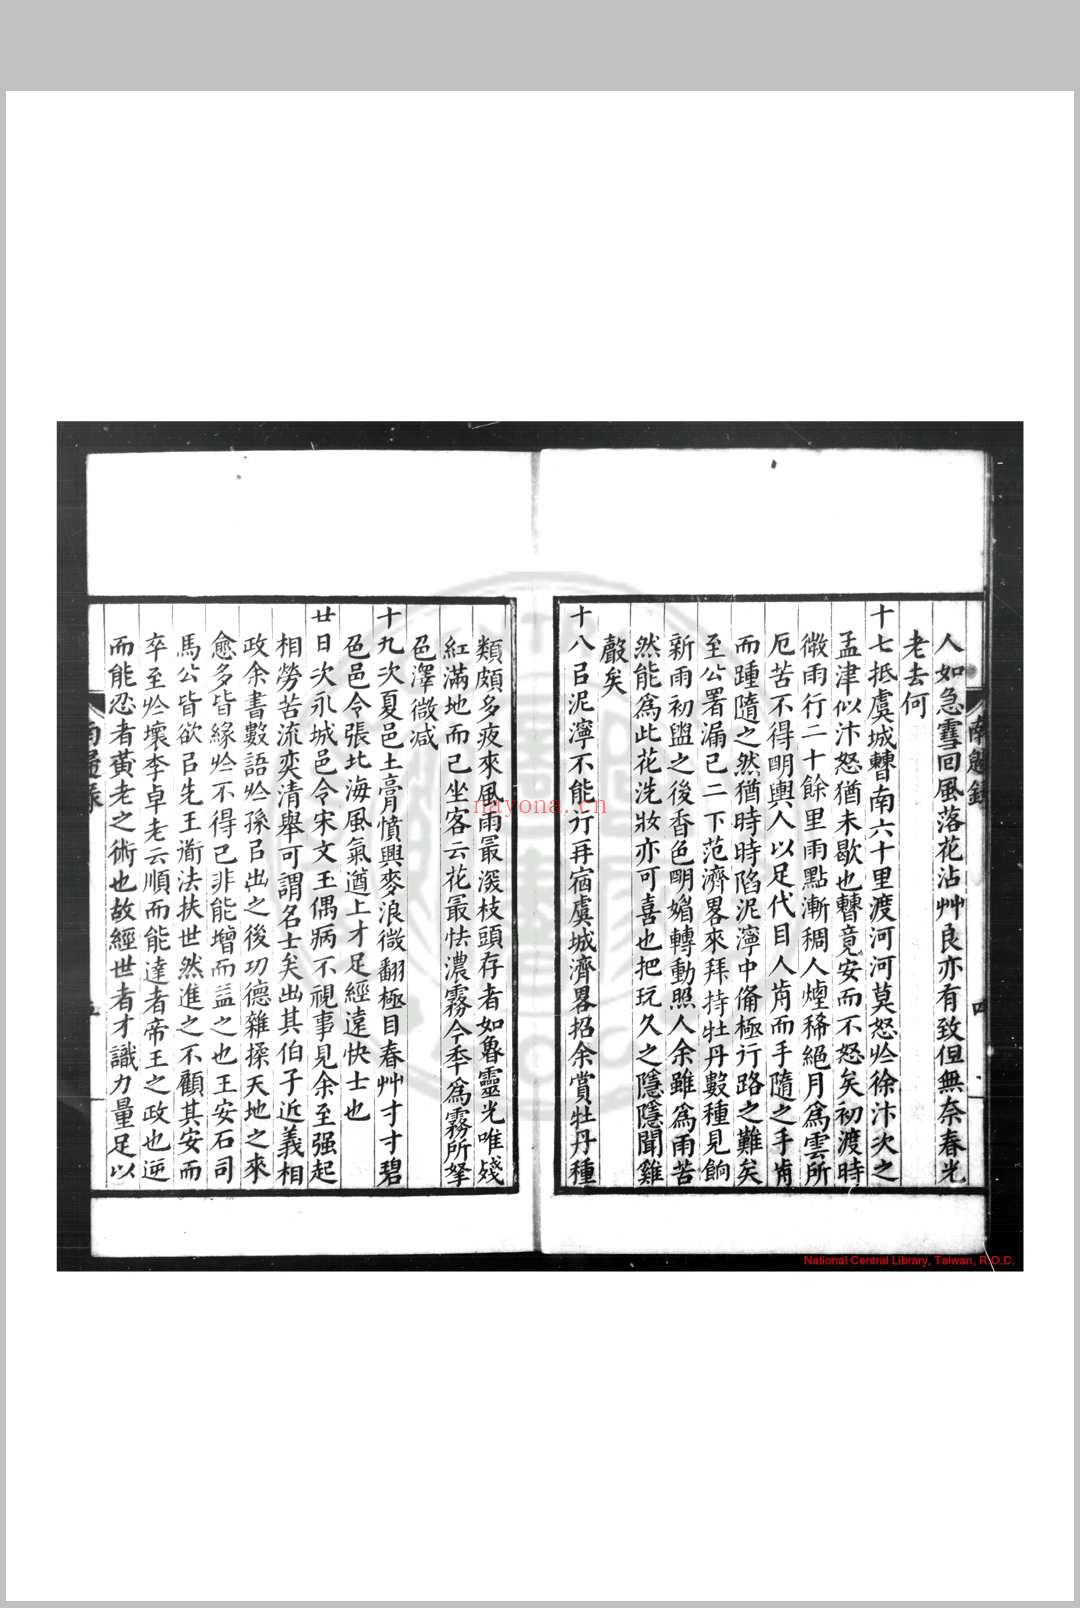 人如急雪回風落花沾艸良亦有致但無奈春光
老去何
十七抵虞城轊南六十里渡河河莫怒於徐汴次之
孟津似汴怒猶未歇也轊竟安而不怒矣初渡時
微雨行二十餘里雨點漸稠人煙稀絕月為雲所
厄苦不得明輿人以足代目人肯而手隨之手肯
而踵隨之然猶時時陷泥濘中備極行路之難矣
至公署漏已二下范濟畧來拜持牡丹數種見餉
新雨初盥之後香色明媚轉動照人余雖為雨苦
然能為此花洗妝亦可喜也把玩久之隱隱聞雞
聲矣
十八㠯泥濘不能行再宿虞城濟畧招余賞牡丹種
類頗多夜來風雨最深枝頭存者如魯靈光唯殘
紅滿地而已坐客云花最怯濃霧今季為霧所拏
色澤微減
十九次夏邑土膏憤興麥浪微翻極目春艸寸寸碧
色邑令張北海風氣遒上才足經遠快士也
廿日次永城邑令宋文玉偶病不視事見余至强起
相勞苦流奕清舉可謂名士矣出其伯子近義相
政余書數語於孫㠯出之後功德雜揉天地之來
愈多皆緣於不得已非能增而益之也王安石司
馬公皆欲㠯先王衜法扶世然進之不顧其安而
卒至於壞李卓老云順而能達者帝王之政也逆
而能忍者黃老之術也故經世者才識力量足以
南還錄
四
National Central Library, Taiwan, R.O.C.
nayona.cn